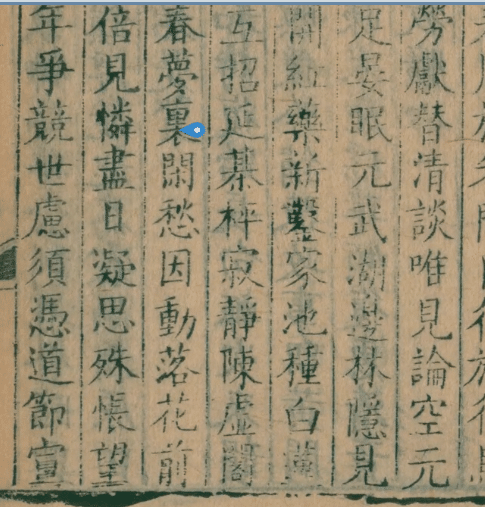 勞獻替清談唯見論空元
足晏眠元武湖邊林隱見
開紅藥新鑿家池種白蓮
互招延棊枰寂靜陳虛閣
春夢裏閑愁因動落花前
倍見憐盡日凝思殊悵望
年爭競世慮須憑道節宣